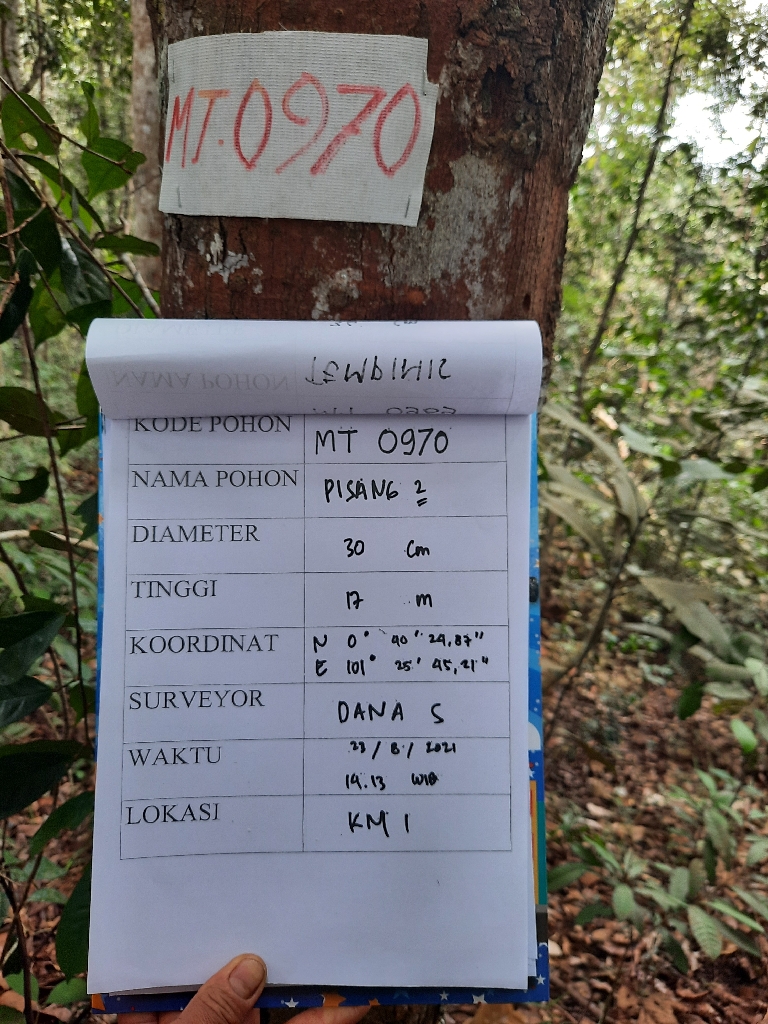 MT.0970
KODE POHON MT 0970
NAMA POHON PISANG 2
DIAMETER 30 Cm
TINGGI 17 m
KOORDINAT N 0° 40" 24,87"
E 101° 25' 45,21"
SURVEYOR DANA S
WAKTU 23/8/2021
14.13 WIB
LOKASI KM 1